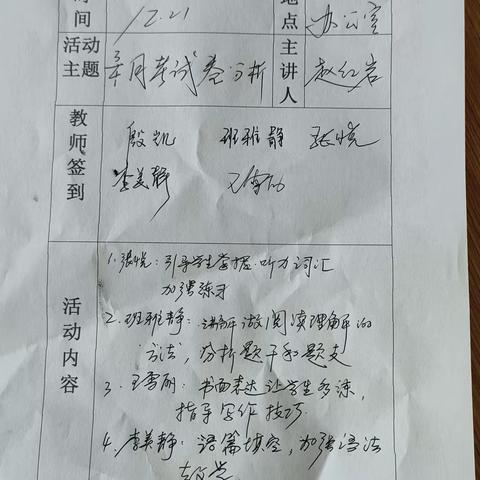 时间 12.21 地点 办公室
活动主题 月考试卷分析 主讲人 赵红岩
教师签到 殷凯 班雅静 张悦
李美静
活动内容
1.张悦：引导学生掌握听力词汇
加强练习
2.班雅静：讲解做阅读理解的
方法，分析题干和题支
3.王雪丽：书面表达让学生多练，
指导写作技巧.
4.李美静：语篇填空，加强语法